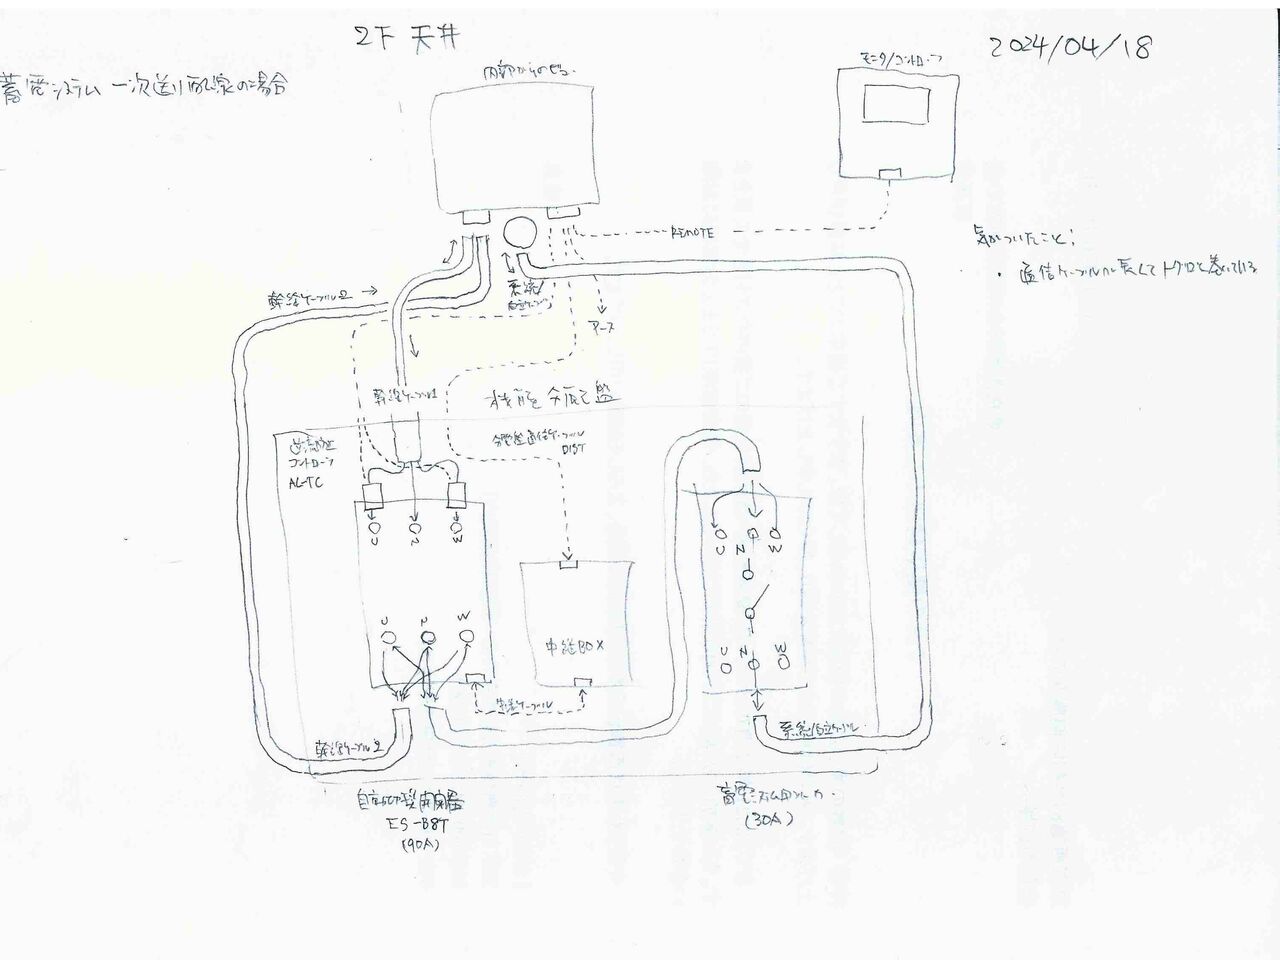 2F 天井
2024/04/18
蓄電システム 一次送り配線の場合
モニタ/コントローラ
REMOTE
気がついたこと;
・通信ケーブルが長くてトグロを巻いている
幹線ケーブル2 →
系統/
自立ケーブル
アース
幹線ケーブル1
機能分電盤
コントローラ
AC-TC
分電盤通信ケーブル
DIST
U N W
U N W
U N W
U N W
中継BOX
ケーブル
幹線ケーブル2
系統/自立ケーブル
自立切替開閉器
ES-B8T
(90A)
蓄電システム用ブレーカ
(30A)